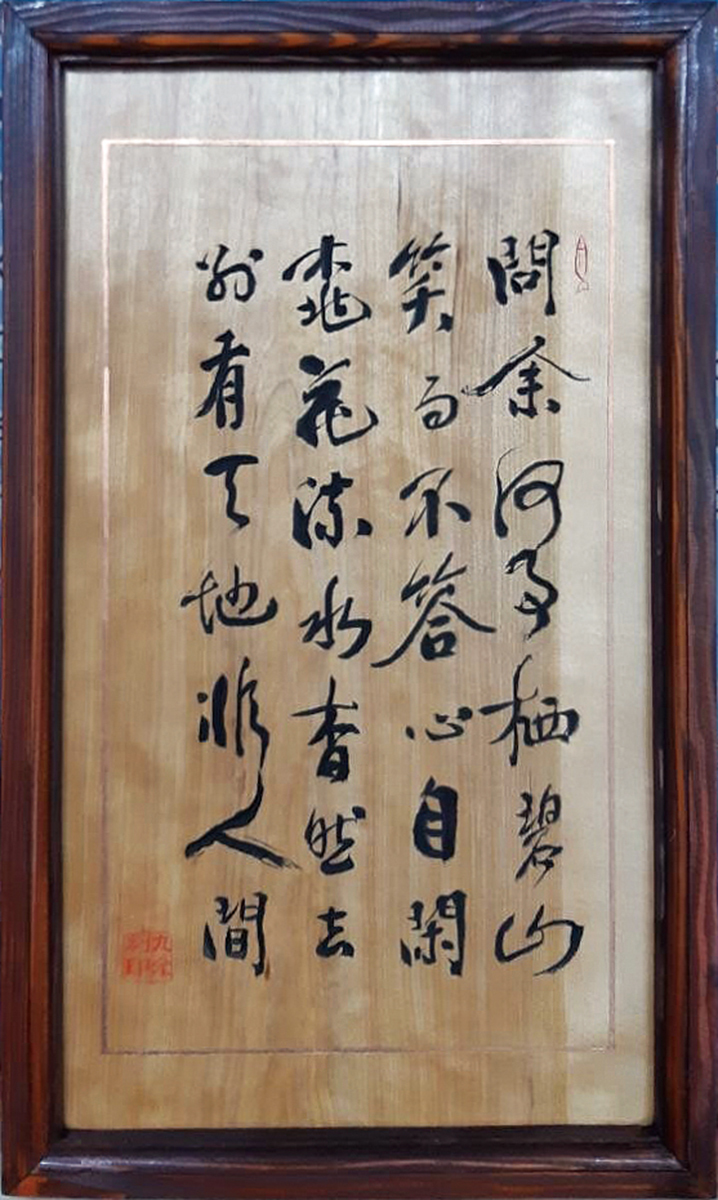 問余何事栖碧山
笑而不答心自閑
桃花流水杳然去
別有天地非人間